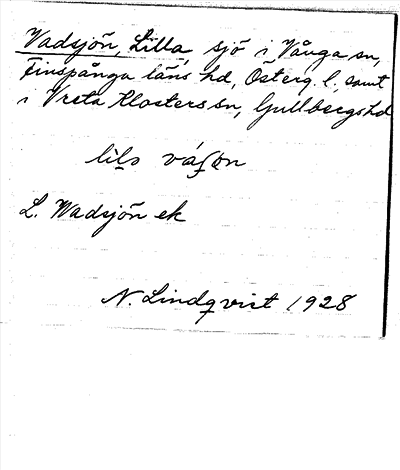 Vadsjön, Lilla, sjö i Vånga sn,
Finspånga läns hd, Österg. l., samt
i Vreta Klosters sn, Gullbergs hd
L. Wadsjön ek
N. Lindqvist 1928